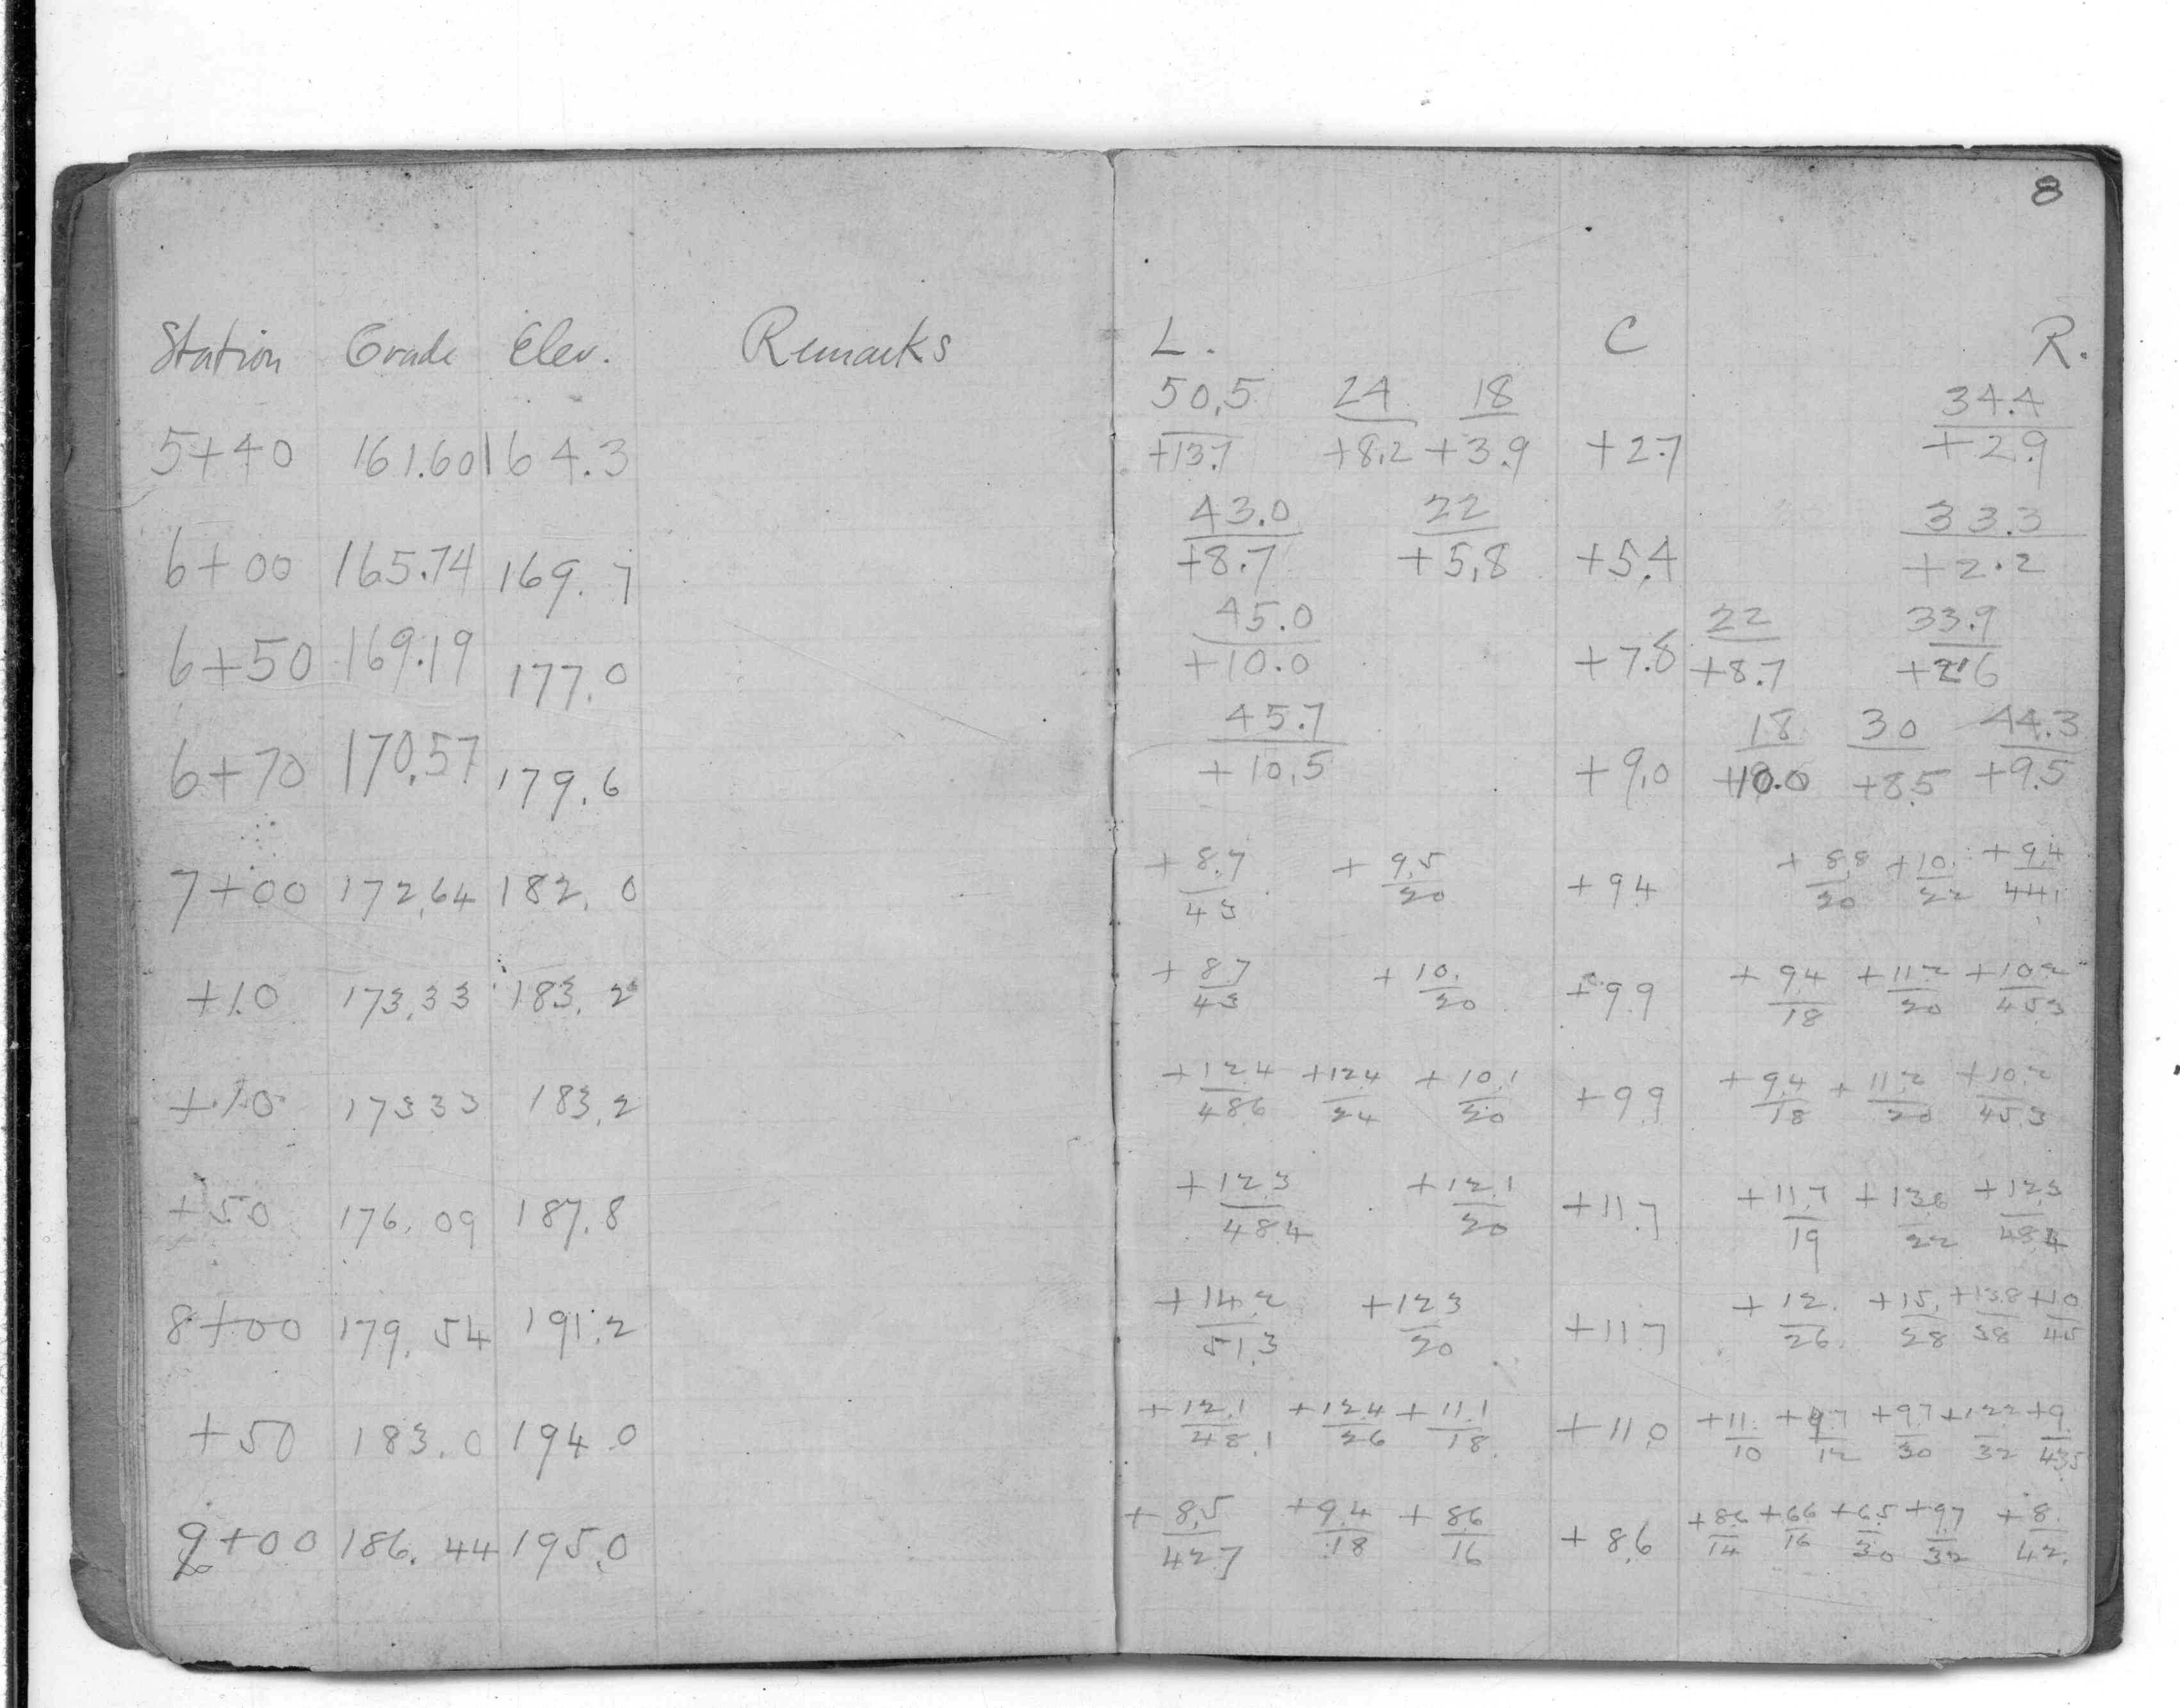 8
Station Grade Elev. Remarks L. C R.
50.5 24 18 34.4
5+40 161.60 164.3 +13.7 +8.2 +3.9 +2.7 +2.9
43.0 22 33.3
6+00 165.74 169.7 +8.7 +5.8 +5.4 +2.2
45.0 22 33.9
6+50 169.19 177.0 +10.0 +7.8 +8.7 +2.6
45.7 18 30 44.3
6+70 170.57 179.6 +10.5 +9.0 +10.0 +8.5 +9.5
+8.7 +9.5 +8.8 +10. +9.4
7+00 172.64 182.0 +9.4
43 20 20 22 44.1
+8.7 +10. +9.4 +11.2 +10.2
+10 173.33 183.2 +9.9
43 20 18 20 45.3
+12.4 +12.4 +10.1 +9.4 +11.2 +10.2
+10 173.33 183.2 +9.9
48.6 24 20 18 20 45.3
+12.3 +12.1 +11.7 +13.6 +12.3
+50 176.09 187.8 +11.7
48.4 20 19 22 48.4
+14.2 +12.3 +12. +15. +13.8 +10
8+00 179.54 191.2 +11.7
51.3 20 26 28 38 45
+12.1 +12.4 +11.1 +11. +9.7 +9.7 +12.2 +9.
+50 183.0 194.0 +11.0
48.1 26 18 10 12 30 32 43.5
+8.5 +9.4 +8.6 +8.6 +6.6 +6.5 +9.7 +8.
9+00 186.44 195.0 +8.6
42.7 18 16 14 16 30 32 42.